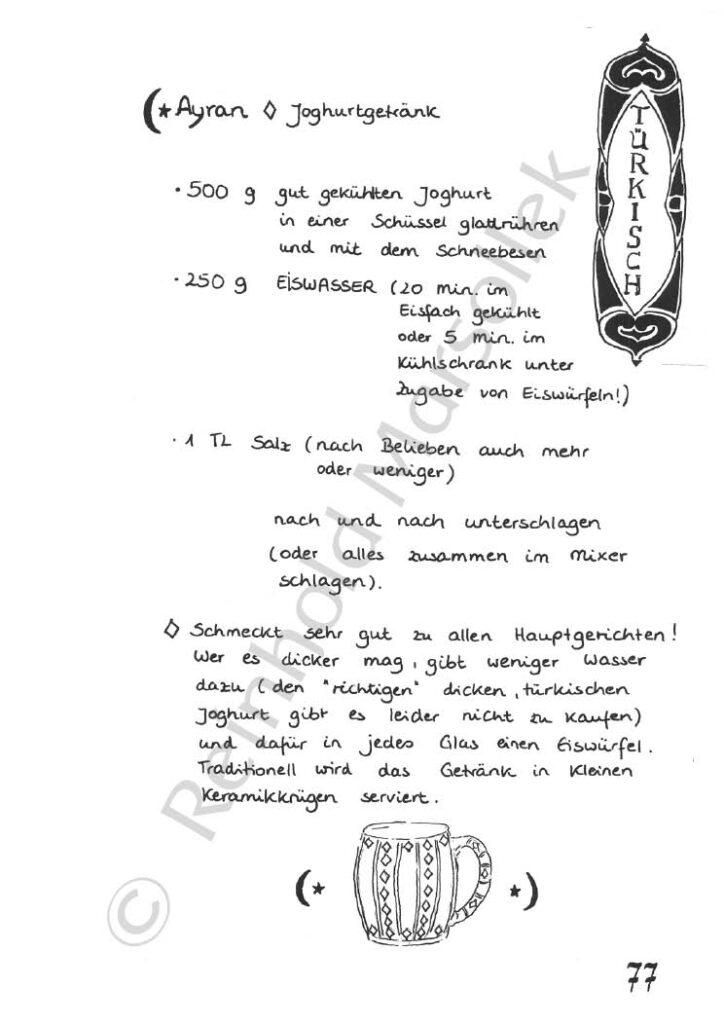 Ayran ◊ Joghurtgetränk
TÜRKISCH
· 500 g gut gekühlten Joghurt
in einer Schüssel glattrühren
und mit dem Schneebesen
· 250 g EISWASSER (20 min. im
Eisfach gekühlt
oder 5 min. im
Kühlschrank unter
Zugabe von Eiswürfeln!)
· 1 TL Salz (nach Belieben auch mehr
oder weniger)
nach und nach unterschlagen
(oder alles zusammen im Mixer
schlagen).
◊ Schmeckt sehr gut zu allen Hauptgerichten!
Wer es dicker mag, gibt weniger Wasser
dazu (den "richtigen" dicken, türkischen
Joghurt gibt es leider nicht zu kaufen)
und dafür in jedes Glas einen Eiswürfel.
Traditionell wird das Getränk in kleinen
Keramikkrügen serviert.
77
© Reinhold Marsollek